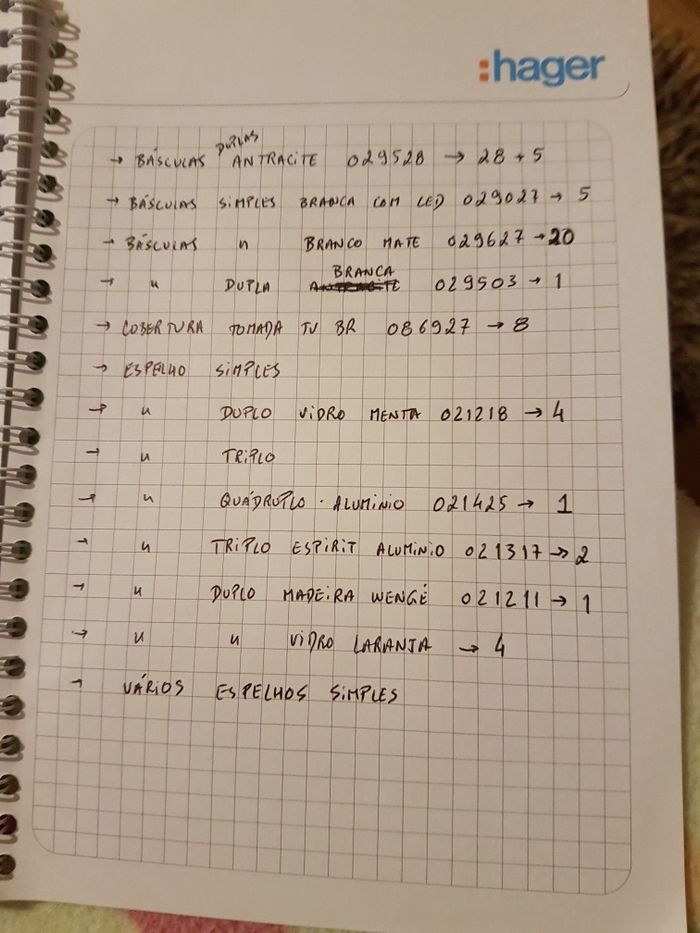 :hager
→ BÁSCULAS DUPLAS ANTRACITE 029528 → 28 + 5
→ BÁSCULAS SIMPLES BRANCA COM LED 029027 → 5
→ BÁSCULAS " BRANCO MATE 029627 → 20
→ " DUPLA BRANCA 029503 → 1
→ COBERTURA TOMADA TV BR 086927 → 8
→ ESPELHO SIMPLES
→ " DUPLO VIDRO MENTA 021218 → 4
→ " TRIPLO
→ " QUÁDRUPLO . ALUMINIO 021425 → 1
→ " TRIPLO ESPIRIT ALUMINIO 021317 → 2
→ " DUPLO MADEIRA WENGÉ 021211 → 1
→ " " VIDRO LARANJA → 4
→ VÁRIOS ESPELHOS SIMPLES